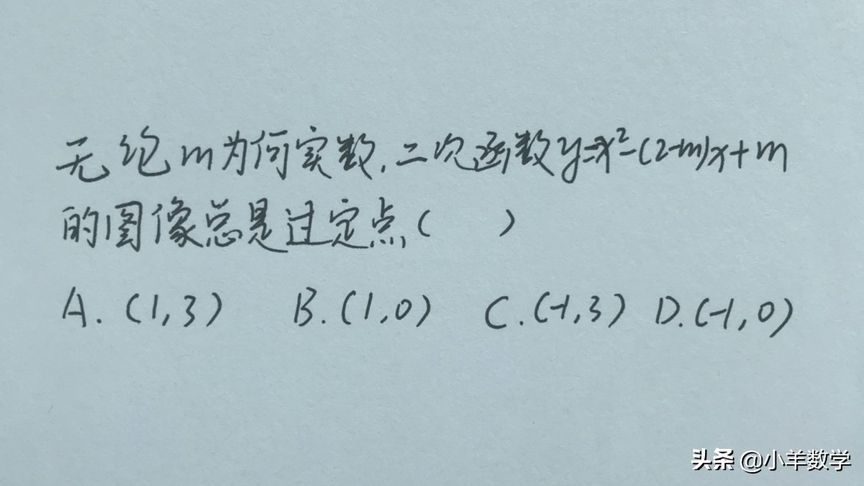 无论m为何实数,二次函数y=x²-(2-m)x+m
的图像总是过定点( )
A.(1,3) B.(1,0) C.(-1,3) D.(-1,0)
头条 @小羊数学